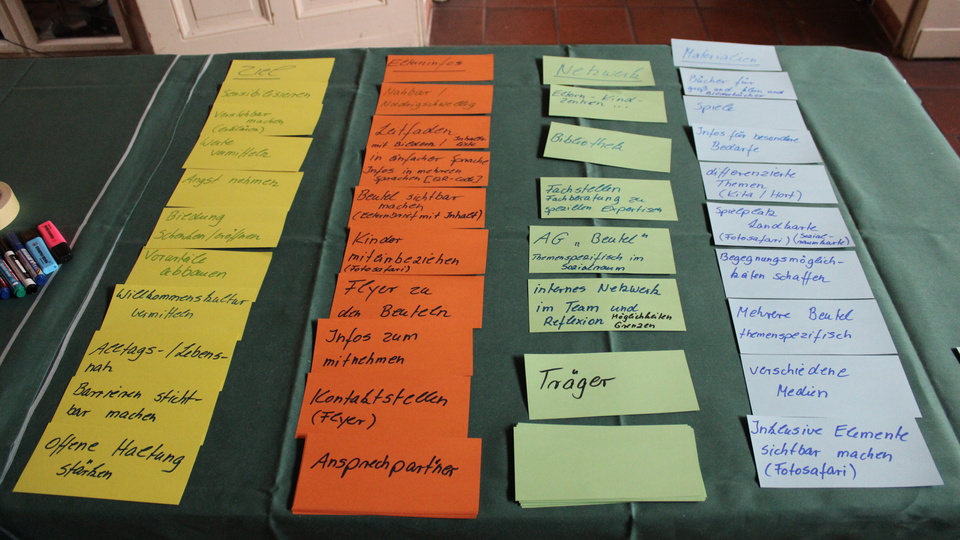 Ziel
Sensibilisieren
Vorurteile
abbauen
Werte
vermitteln
Angst nehmen
Bildung
Willkommenskultur
vermitteln
Alltags-/Lebens-
nah
Barrieren sicht-
bar machen
Offene Haltung
stärken
Elterninfos
Nahbar /
Niedrigschwellig
Leitfaden
mit Bildern / Inhalts-
liste
in einfacher Sprache
Infos in mehreren
Sprachen [QR-code]
Beutel sichtbar
machen
(Elternbrief mit Inhalt)
Kinder
miteinbeziehen
(Fotosafari)
Flyer zu
den Beuteln
Infos zum
mitnehmen
Kontaktstellen
(Flyer)
Ansprechpartner
Netzwerk
Eltern-Kind-
zentren ...
Bibliothek
Fachstellen
Fachberatung zu
speziellen Expertisen
AG „Beutel"
Themenspezifisch im
Sozialraum
internes Netzwerk
im Team und
Reflexion Möglichkeiten
Grenzen
Träger
Materialien
Bücher für
groß und klein und
Bilderbücher
Spiele
Infos für besondere
Bedarfe
differenzierte
Themen
(Kita / Hort)
Spielplatz
Landkarte
(Fotosafari) (Sozial-
raumkarte)
Begegnungsmöglich-
keiten schaffen
Mehrere Beutel
themenspezifisch
verschiedene
Medien
Inklusive Elemente
sichtbar machen
(Fotosafari)